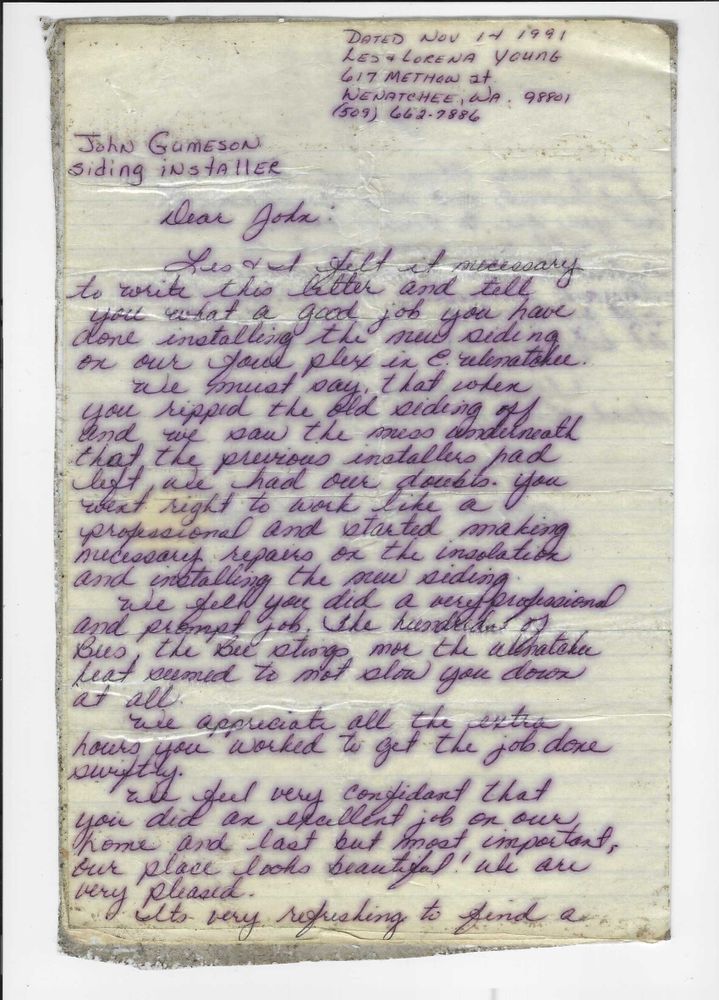 DATED NOV 14 1991
LES & LORENA YOUNG
617 METHOW St.
WENATCHEE, WA. 98801
(509) 662-7886
JOHN GUMESON
Siding INSTALLER
Dear John:
Les & I felt it necessary
to write this letter and tell
you what a good job you have
done installing the new siding
on our four plex in E. Wenatchee.
We must say, that when
you ripped the old siding off
and we saw the mess underneath
that the previous installers had
left, we had our doubts. You
went right to work like a
professional and started making
necessary repairs on the insolation
and installing the new siding.
We felt you did a very professional
and prompt job. The hundreds of
Bees, the Bee stings nor the Wenatchee
heat seemed to not slow you down
at all.
We appreciate all the extra
hours you worked to get the job done
swiftly.
We feel very confidant that
you did an excellent job on our
home and last but most important,
our place looks beautiful! We are
very pleased.
Its very refreshing to find a